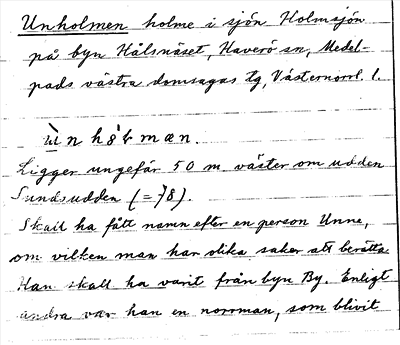 Unholmen holme i sjön Holmsjön
på byn Hålsnäset, Haverö sn, Medel-
pads västra domsagas tg, Västernorrl. l.
Ligger ungefär 50 m väster om udden
Sundsudden (=78).
Skall ha fått namn efter en person Unne,
om vilken man har olika saker att berätta.
Han skall ha varit från byn By. Enligt
andra var han en norrman, som blivit